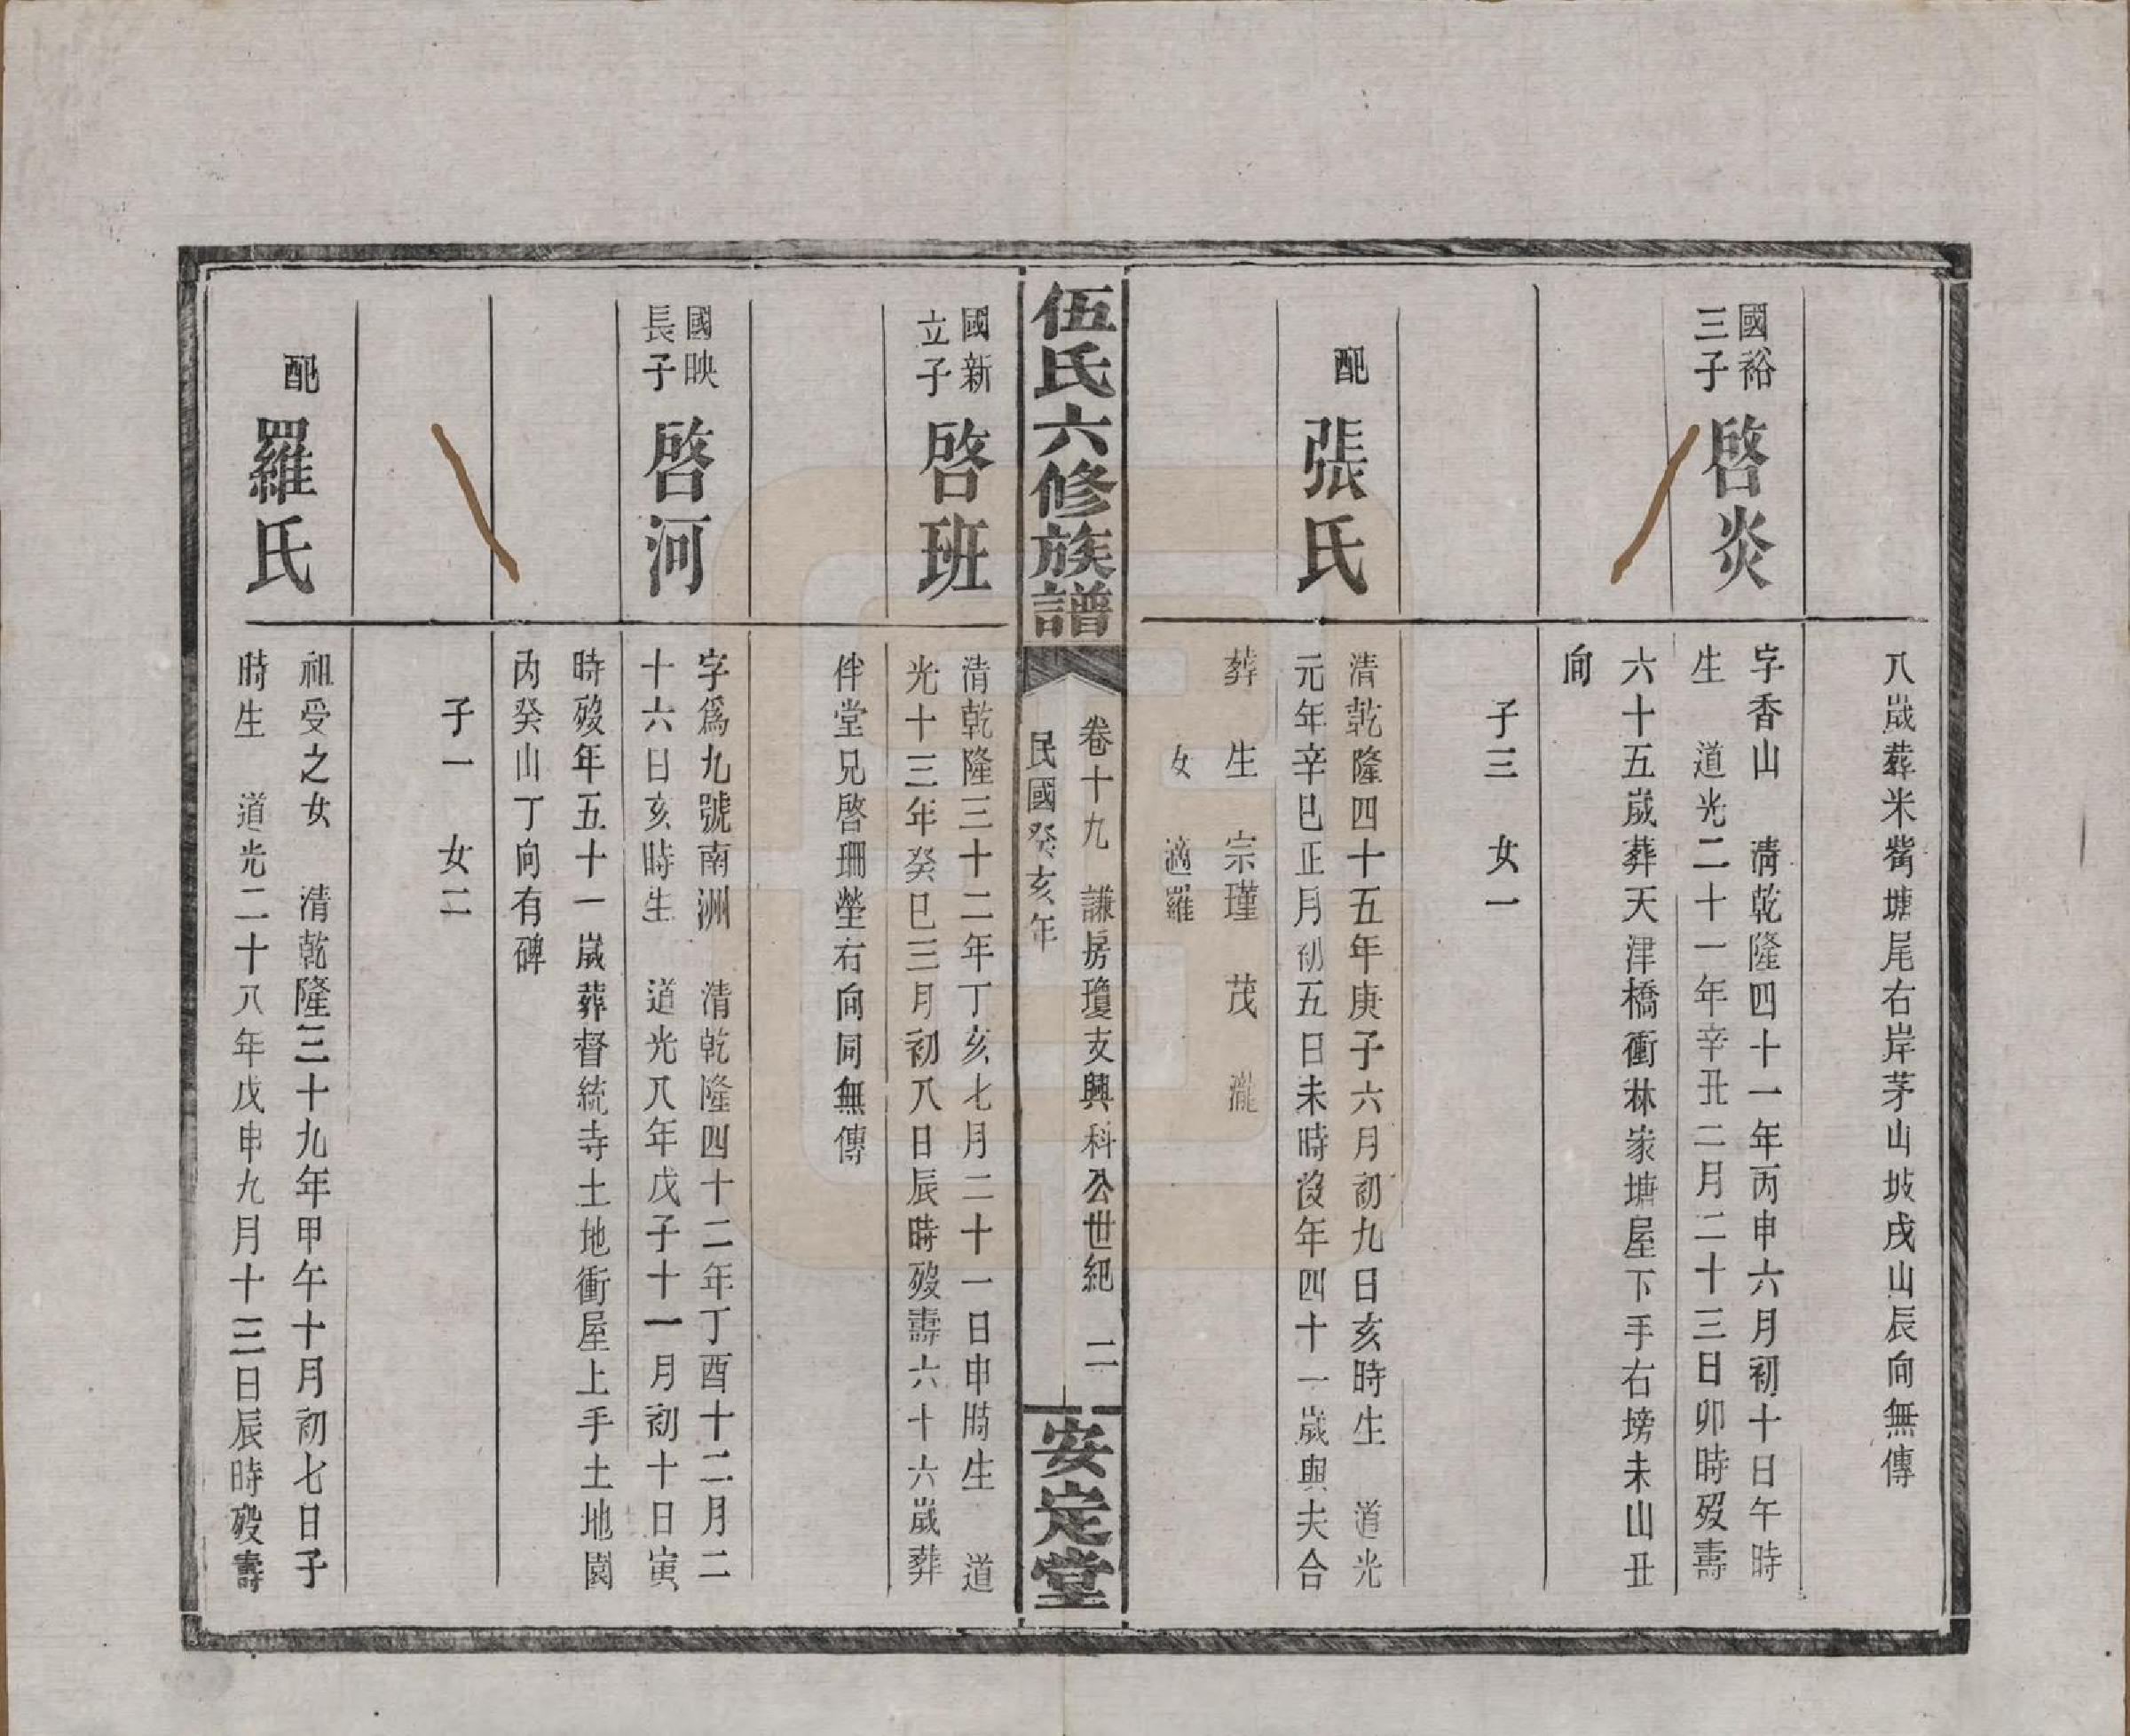 八歲葬米嘴塘尾右岸茅山坡戌山辰向無傳
國裕
三子
啓炎
字香山 清乾隆四十一年丙申六月初十日午時
生 道光二十一年辛丑二月二十三日卯時歿壽
六十五歲葬天津橋衝林家塘屋下手右塝未山丑
向
子三 女一
配
張氏
清乾隆四十五年庚子六月初九日亥時生 道光
元年辛巳正月初五日未時沒年四十一歲與夫合
葬 生 宗瑾 茂 瀧
女 適羅
伍氏六修族譜
卷十九 謙房瓊支興科公世紀 二
民國癸亥年
安定堂
國新
立子
啓班
清乾隆三十二年丁亥七月二十一日申時生 道
光十三年癸巳三月初八日辰時歿壽六十六歲葬
伴堂兄啓珊塋右向同無傳
國映
長子
啓河
字為九號南洲 清乾隆四十二年丁酉十二月二
十六日亥時生 道光八年戊子十一月初十日寅
時歿年五十一歲葬督統寺土地衝屋上手土地園
內癸山丁向有碑
子一 女二
配
羅氏
祖受之女 清乾隆三十九年甲午十月初七日子
時生 道光二十八年戊申九月十三日辰時歿壽